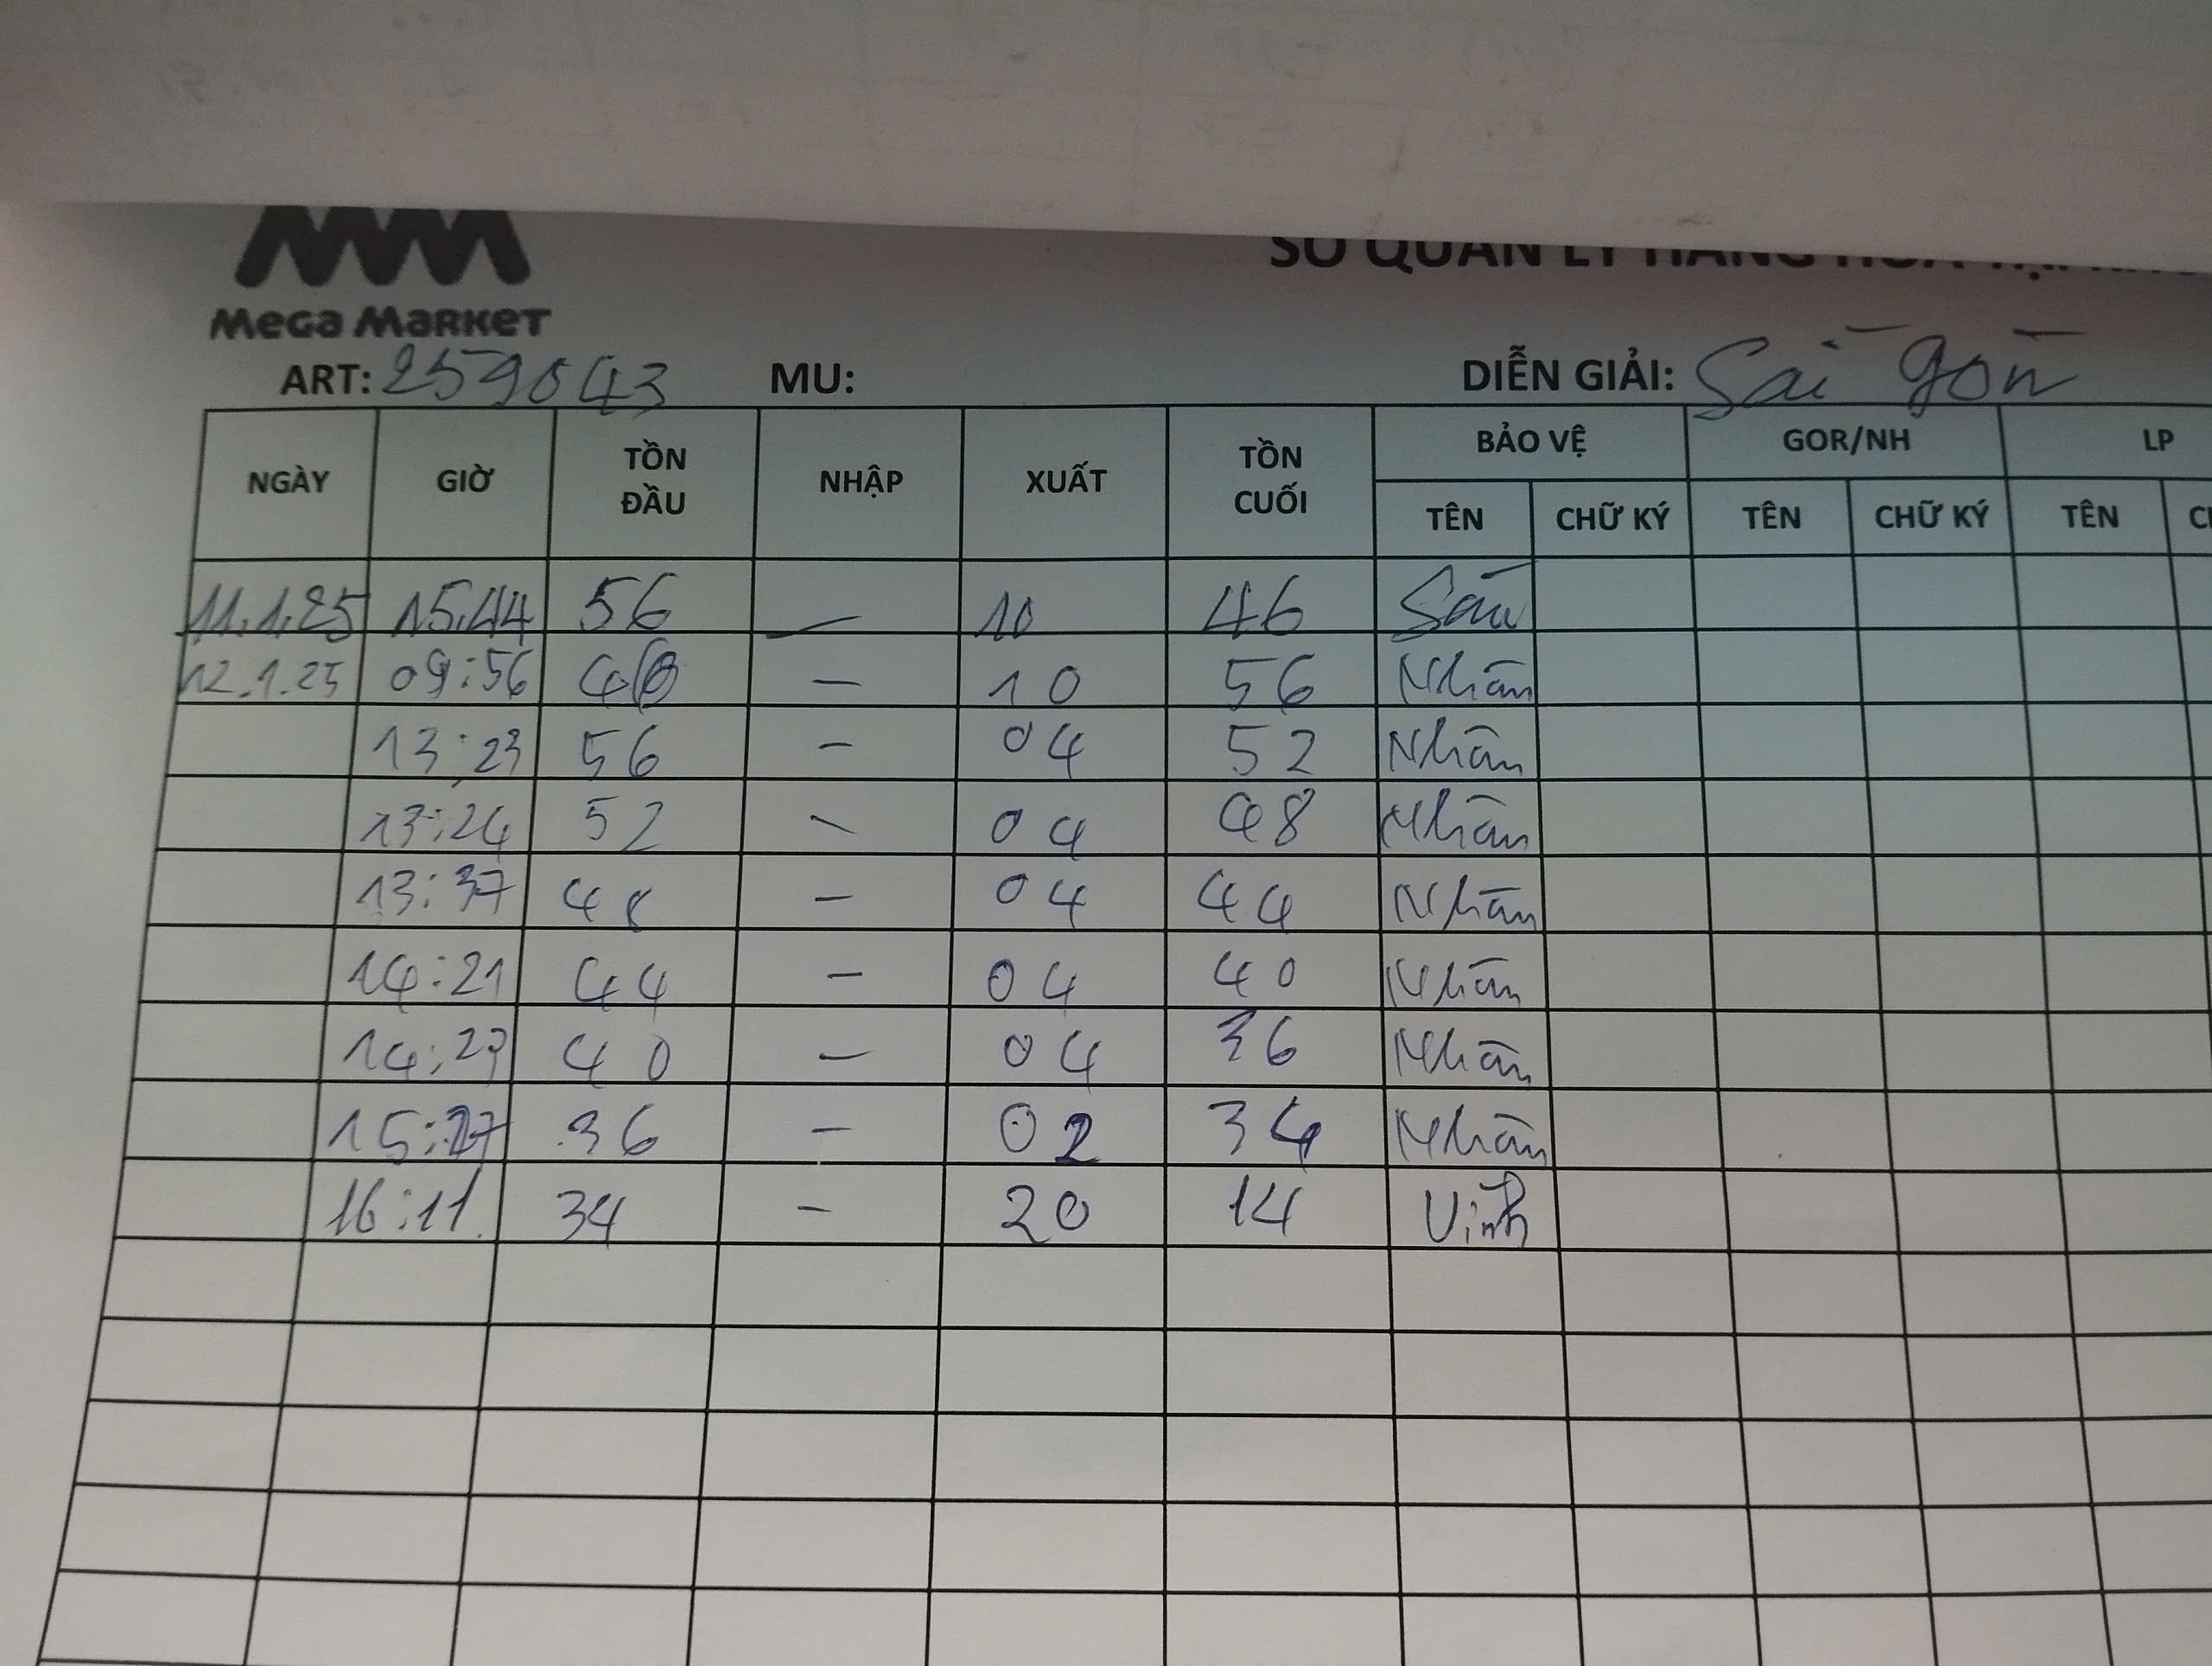 Mega Market
SỔ QUẢN LÝ HÀNG HÓA TẠI
ART: 259043 MU: DIỄN GIẢI: Sài gòn
NGÀY GIỜ TỒN ĐẦU NHẬP XUẤT TỒN CUỐI BẢO VỆ GOR/NH LP
TÊN CHỮ KÝ TÊN CHỮ KÝ TÊN
11.1.25 15.44 56 — 10 46 Sáu
12.1.25 09:56 46 — 10 56 Nhân
13:23 56 — 04 52 Nhân
13:24 52 — 04 48 Nhân
13:37 48 — 04 44 Nhân
14:21 44 — 04 40 Nhân
14:27 40 — 04 36 Nhân
15:27 36 — 02 34 Nhân
16:11 34 — 20 14 Vinh